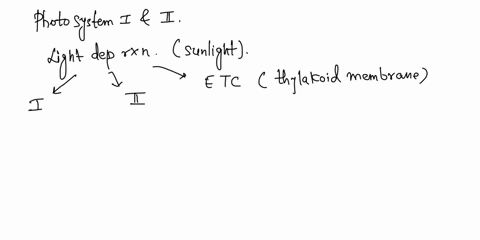 Photosystem I & II.
Light dep rxn. (sunlight).
ETC (thylakoid membrane)
I II